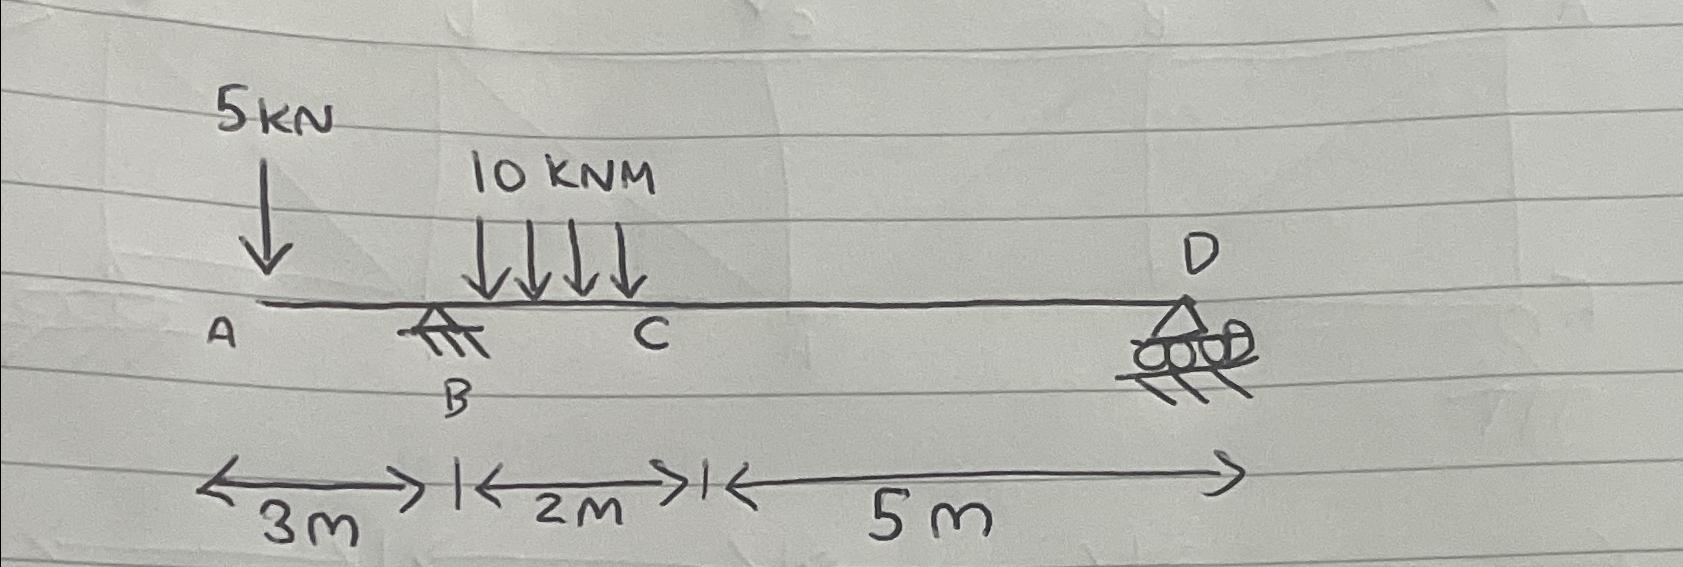 5KN
10 KNM
D
A
C
B
3m
2m
5m